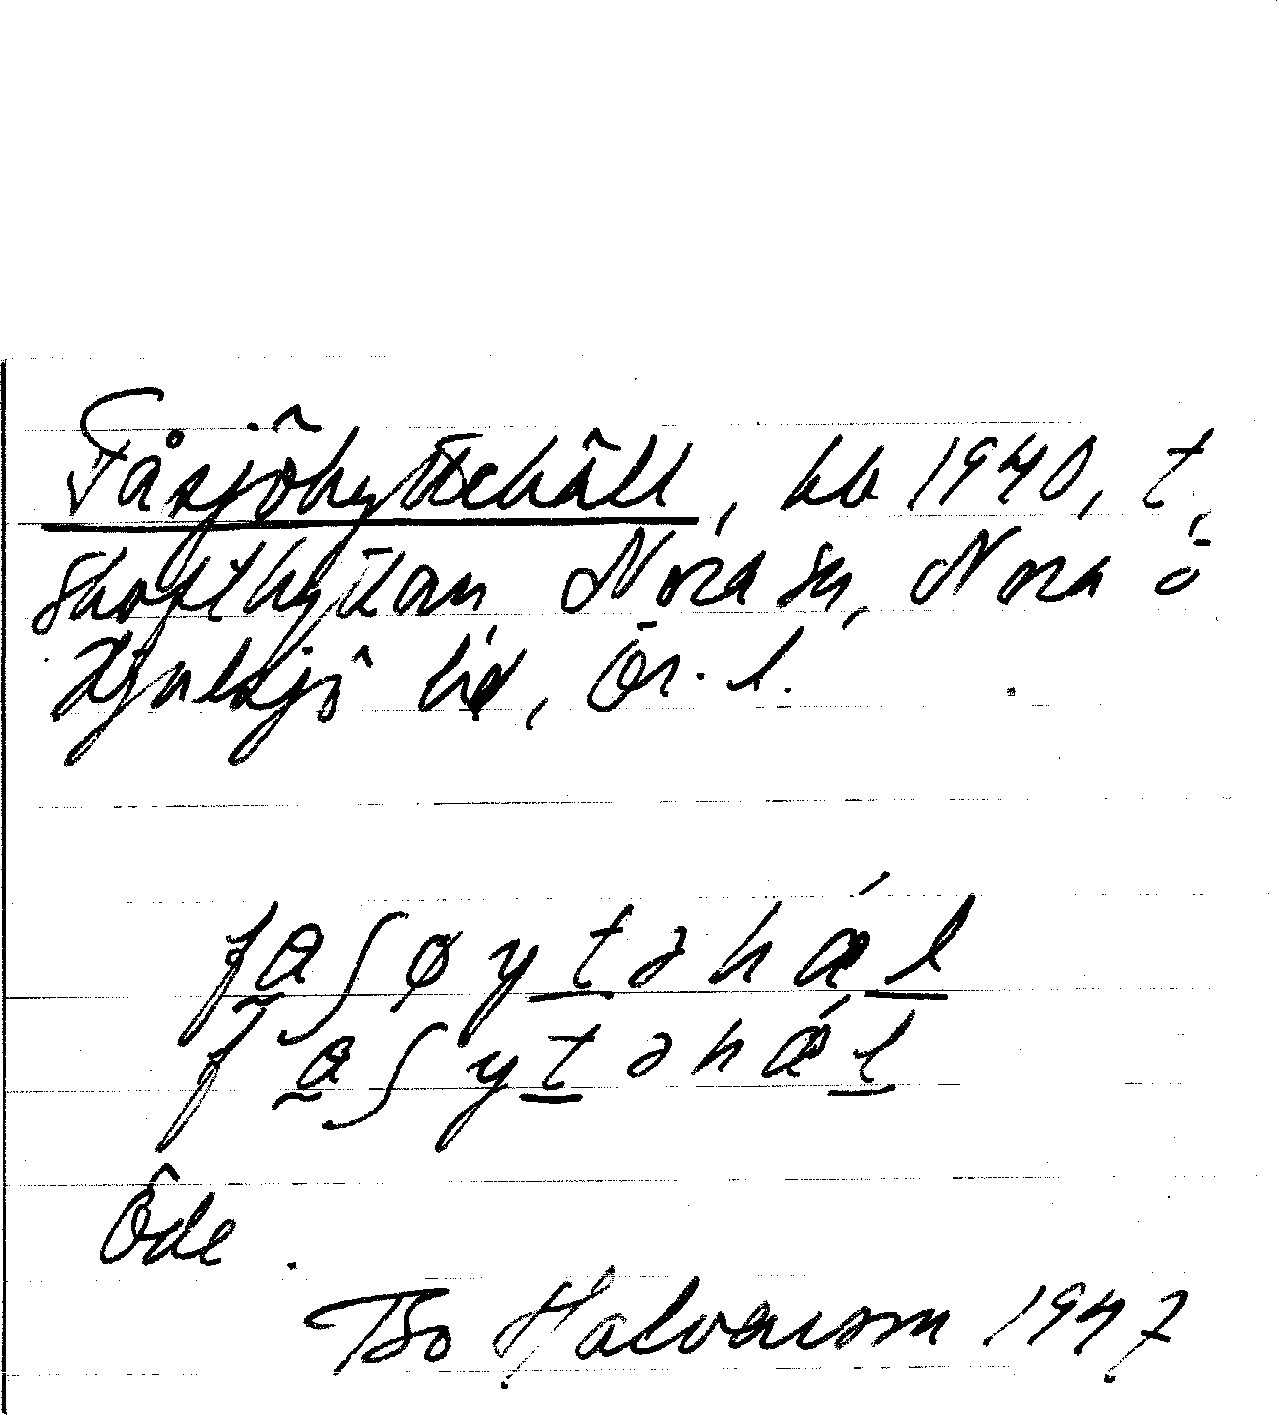 Fåsjöhyttehäll, kb 1940, t.
Skofthyttan, Nora sn, Nora o
Hjulsjö hd, Ör. l.
fa̰ʃøytəhǽl
fa̰ʃytəhǽl
Öde.
Bo Halvarson 1947